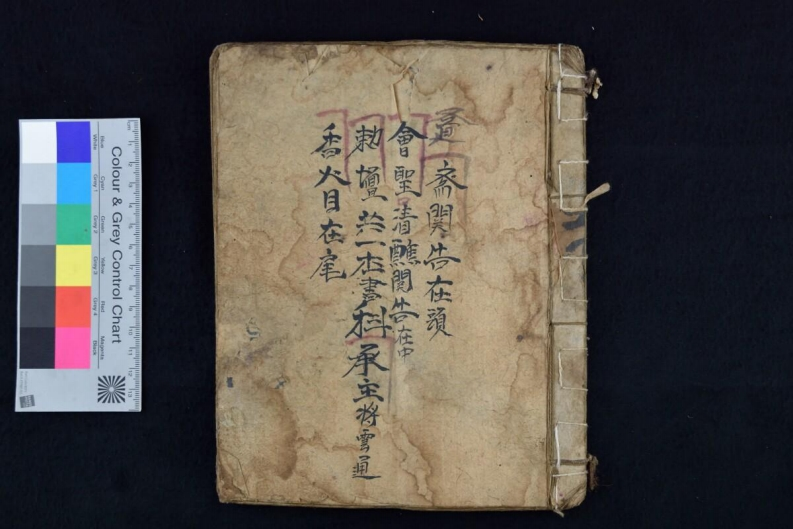 齋閱告在頭
會聖清醮閱告在中
勅壇共一本書科承主將雲通
香火目在尾
Colour & Grey Control Chart
Blue Cyan Green Yellow Red Magenta
White Grey 1 Grey 2 Grey 3 Grey 4 Black